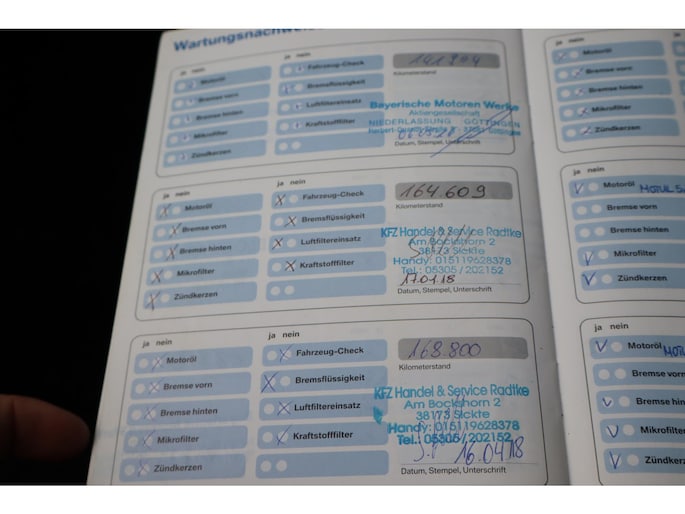 Wartungsnachweis
ja nein
Motoröl
Bremse vorn
Bremse hinten
Mikrofilter
Zündkerzen
ja nein
Fahrzeug-Check
Bremsflüssigkeit
Luftfiltereinsatz
Kraftstofffilter
Kilometerstand
Bayerische Motoren Werke
Aktiengesellschaft
NIEDERLASSUNG GÖTTINGEN
Datum, Stempel, Unterschrift
ja nein
Motoröl
Bremse vorn
Bremse hinten
Mikrofilter
Zündkerzen
ja nein
Fahrzeug-Check
Bremsflüssigkeit
Luftfiltereinsatz
Kraftstofffilter
164.609
Kilometerstand
KFZ Handel & Service Radtke
Am Bockshorn 2
38173 Sickte
Handy: 015119628378
Tel.: 05305/202152
17.01.18
Datum, Stempel, Unterschrift
ja nein
Motoröl
Bremse vorn
Bremse hinten
Mikrofilter
Zündkerzen
ja nein
Fahrzeug-Check
Bremsflüssigkeit
Luftfiltereinsatz
Kraftstofffilter
168.800
Kilometerstand
KFZ Handel & Service Radtke
Am Bockshorn 2
38173 Sickte
Handy: 015119628378
Tel.: 05305/202152
16.04.18
Datum, Stempel, Unterschrift
ja nein
Motoröl
Bremse vorn
Bremse hinten
Mikrofilter
Zündkerzen
ja nein
Motoröl MOTUL
Bremse vorn
Bremse hinten
Mikrofilter
Zündkerzen
ja nein
Motoröl
Bremse vorn
Bremse hin
Mikrofilter
Zündkerzen